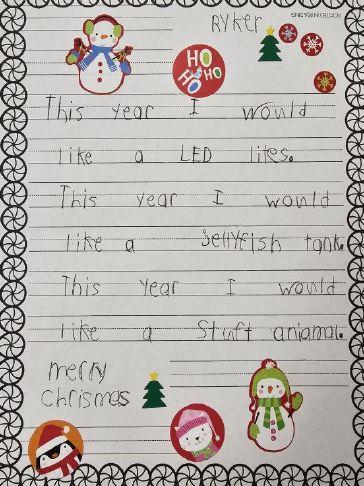 Ryker
HO
HO HO
This year I would
like a LED lites.
This year I would
like a jellyfish tank.
This year I would
like a Stuft aniamal.
merry
chrismas